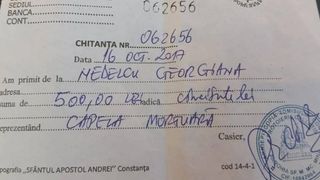 SEDIUL
BANCA 062656
CONT.
CHITANȚA NR. 062656
Data 16 OCT. 2017
Am primit de la NEDELCU GEORGIANA
Adresa
Suma de 500,00 LEI adică cincisute lei
reprezentând CAPELA MORTUARĂ
Casier,
Tipografia „SFÂNTUL APOSTOL ANDREI" Constanța cod 14-4-1